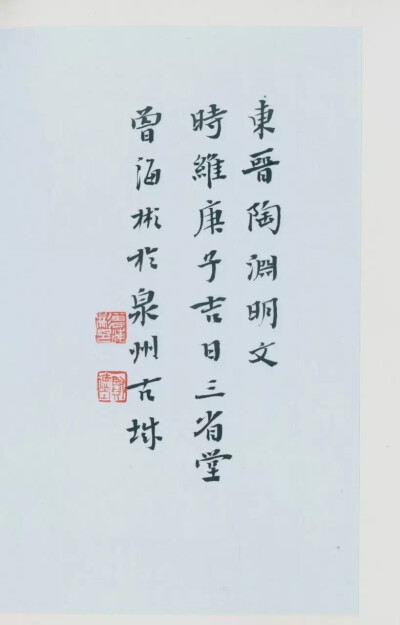 東晉陶淵明文
時維庚子吉日三省堂
曾海彬於泉州古城